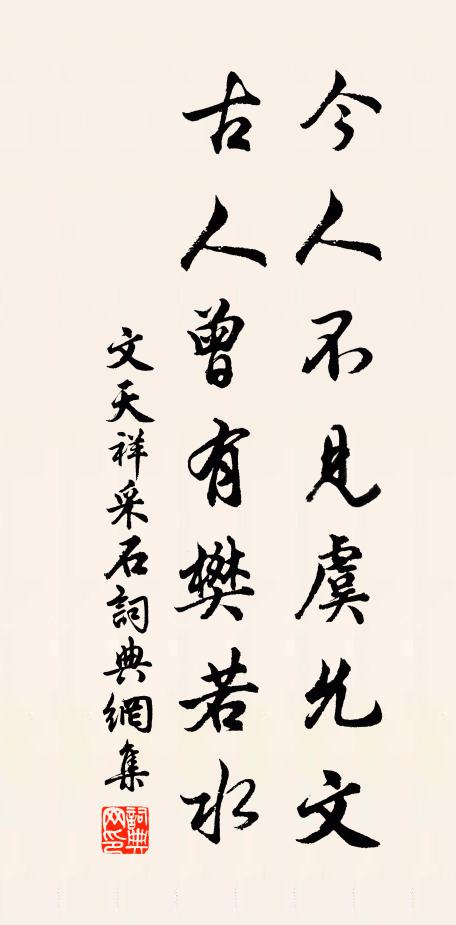 今人不見虞允文
古人曾有樊若水
文天祥采石詞典網集
詞典網印